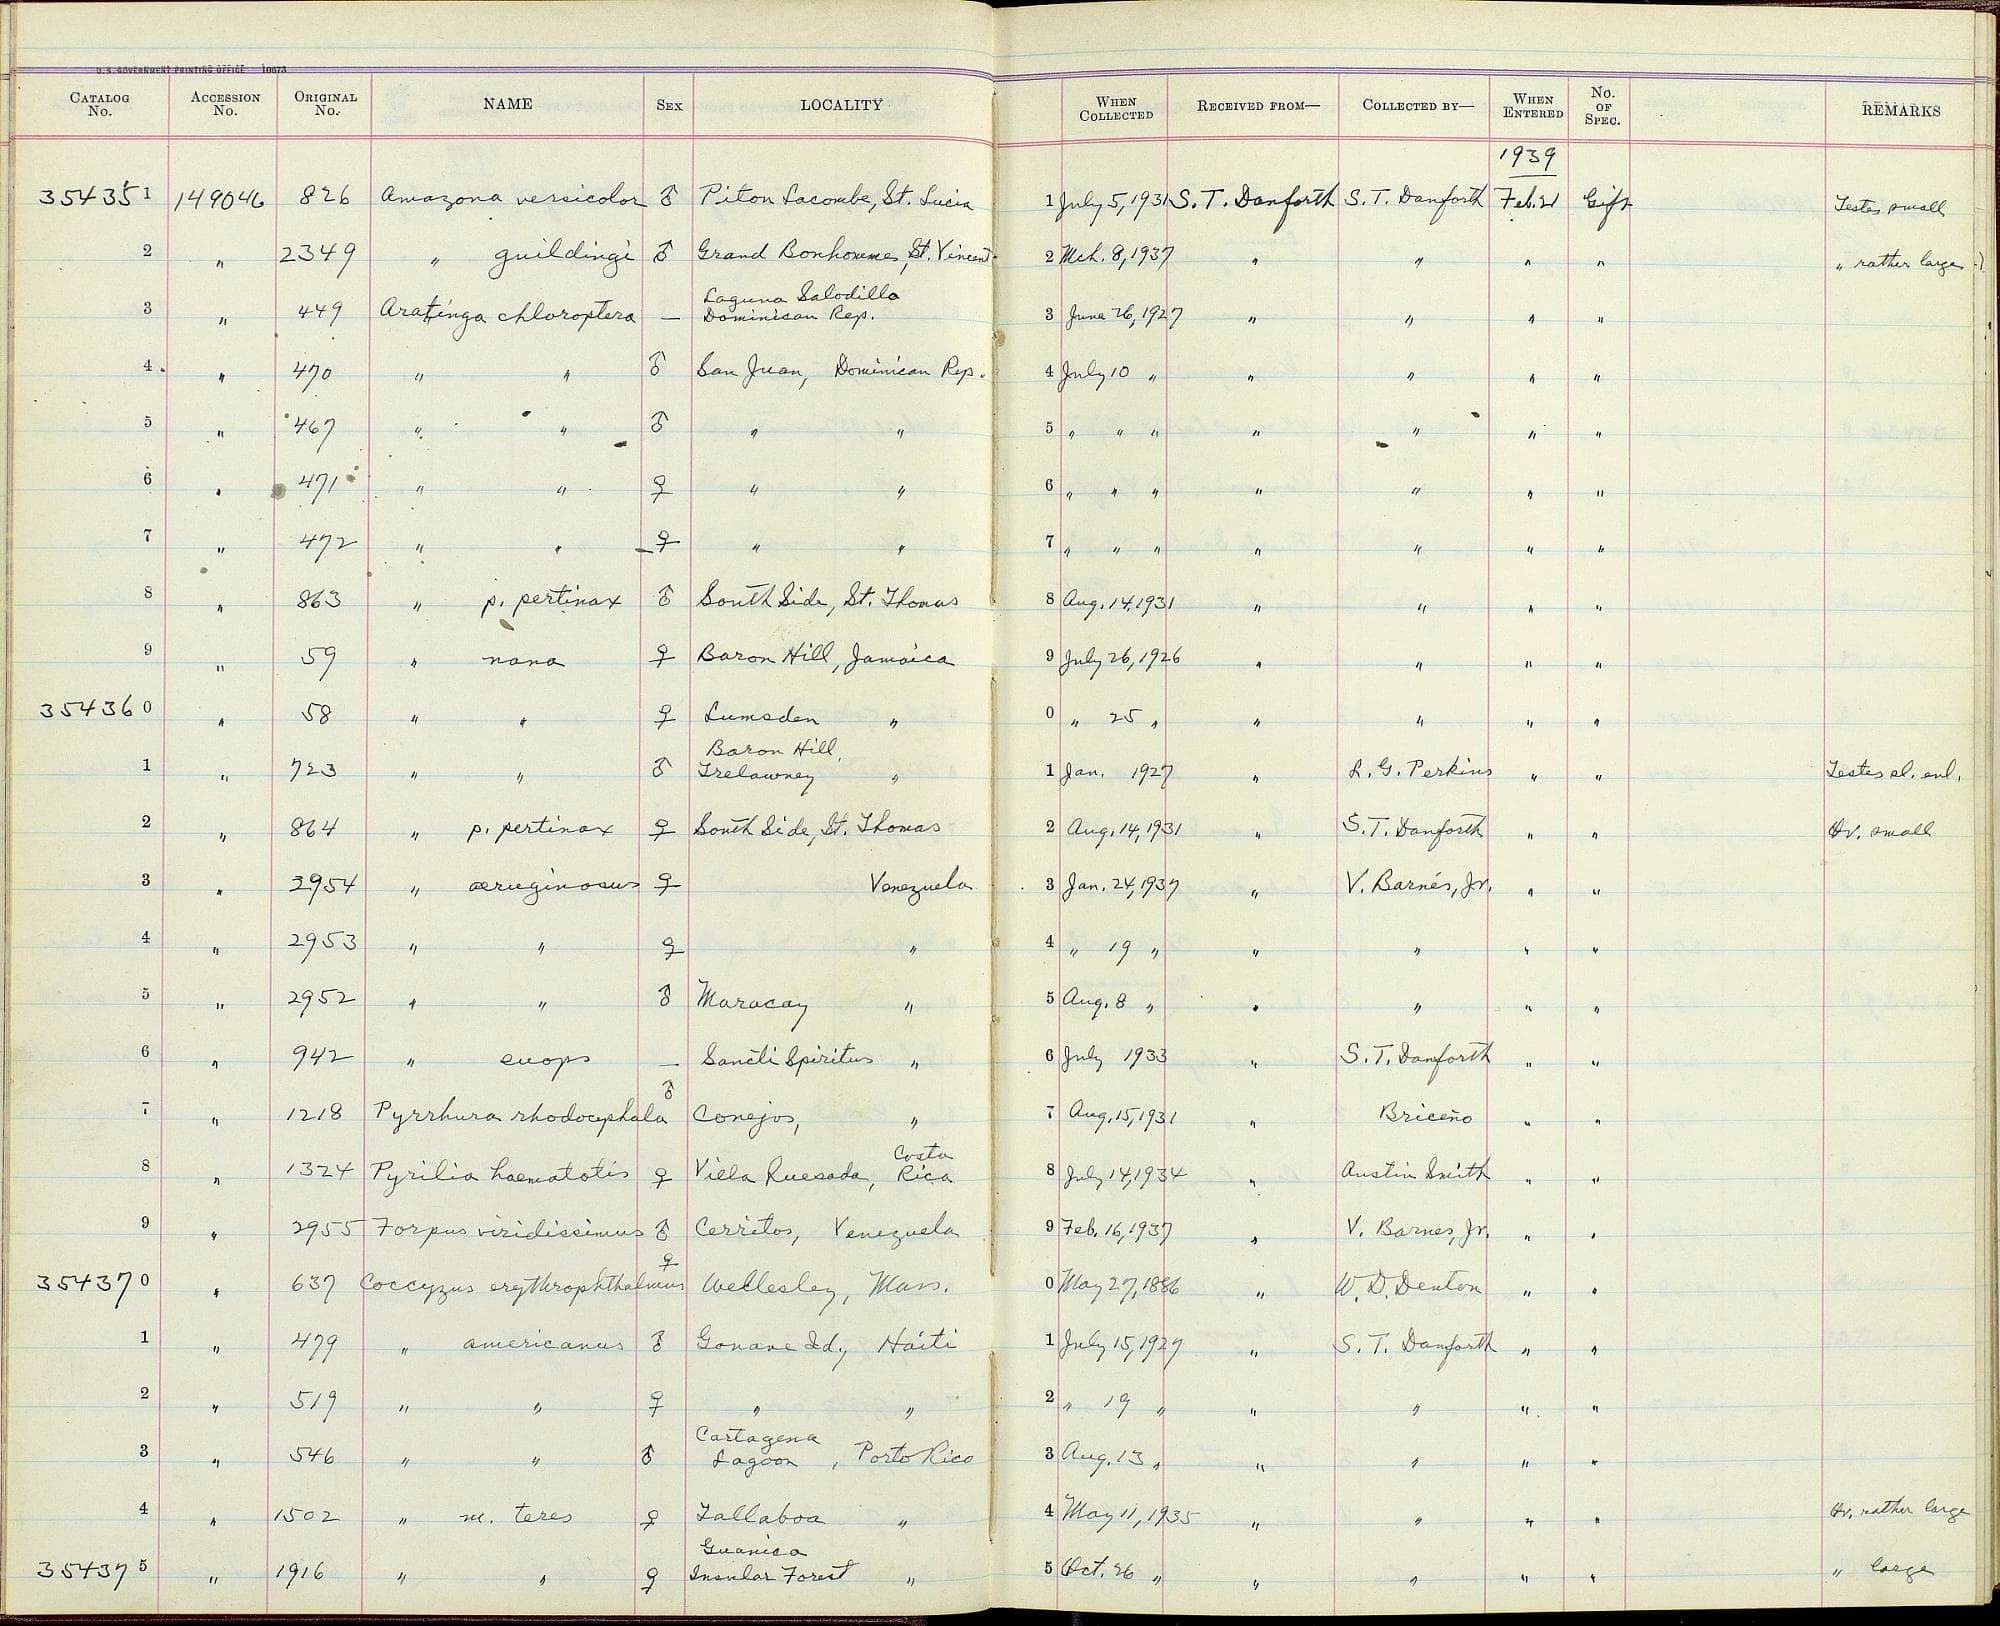 U.S. GOVERNMENT PRINTING OFFICE 10673
CATALOG No. ACCESSION No. ORIGINAL No. NAME SEX LOCALITY WHEN COLLECTED RECEIVED FROM— COLLECTED BY— WHEN ENTERED NO. OF SPEC. REMARKS
1939
354351 149046 826 Amazona versicolor ♂ Piton Lacombe, St. Lucia 1 July 5, 1931 S. T. Danforth S. T. Danforth Feb. 21 Gift Testes small
2 " 2349 " guildingi ♂ Grand Bonhommes, St. Vincent 2 Mch. 8, 1937 " " " " " rather large
3 " 449 Aratinga chloroptera — Laguna Salodillo Dominican Rep. 3 June 26, 1927 " " " "
4 " 470 " " ♂ San Juan, Dominican Rep. 4 July 10 " " " " "
5 " 467 " " ♂ " " 5 " " " " " " "
6 " 471 " " ♀ " " 6 " " " " " " "
7 " 472 " " ♀ " " 7 " " " " " " "
8 " 863 " p. pertinax ♂ South Side, St. Thomas 8 Aug. 14, 1931 " " " "
9 " 59 " nana ♀ Baron Hill, Jamaica 9 July 26, 1926 " " " "
354360 " 58 " " ♀ Lumsden " 0 " 25 " " " " "
1 " 723 " " ♂ Baron Hill, Trelawney " 1 Jan. 1927 " L. G. Perkins " " Testes sl. enl.
2 " 864 " p. pertinax ♀ South Side, St. Thomas 2 Aug. 14, 1931 " S. T. Danforth " " Ov. small
3 " 2954 " aeruginosus ♀ Venezuela 3 Jan. 24, 1937 " V. Barnés, Jr. " "
4 " 2953 " " ♀ " 4 " 19 " " " " "
5 " 2952 " " ♂ Maracay " 5 Aug. 8 " " " " "
6 " 942 " euops — Sancti Spiritus " 6 July 1933 " S. T. Danforth " "
7 " 1218 Pyrrhura rhodocephala ♂ Conejos, " 7 Aug. 15, 1931 " Briceño " "
8 " 1324 Pyrilia haematotis ♀ Villa Quesada, Costa Rica 8 July 14, 1934 " Austin Smith " "
9 " 2955 Forpus viridissimus ♂ Cerritos, Venezuela 9 Feb. 16, 1937 " V. Barnes, Jr. " "
354370 " 637 Coccyzus erythrophthalmus ♀ Wellesley, Mass. 0 May 27, 1886 " W. D. Denton " "
1 " 479 " americanus ♂ Gonave Id., Haiti 1 July 15, 1927 " S. T. Danforth " "
2 " 519 " " ♀ " " 2 " 19 " " " " "
3 " 546 " " ♂ Cartagena Lagoon, Porto Rico 3 Aug. 13 " " " " "
4 " 1502 " m. teres ♀ Tallaboa " 4 May 11, 1935 " " " " Ov. rather large
354375 " 1916 " " ♀ Guanica Insular Forest " 5 Oct. 26 " " " " " " large